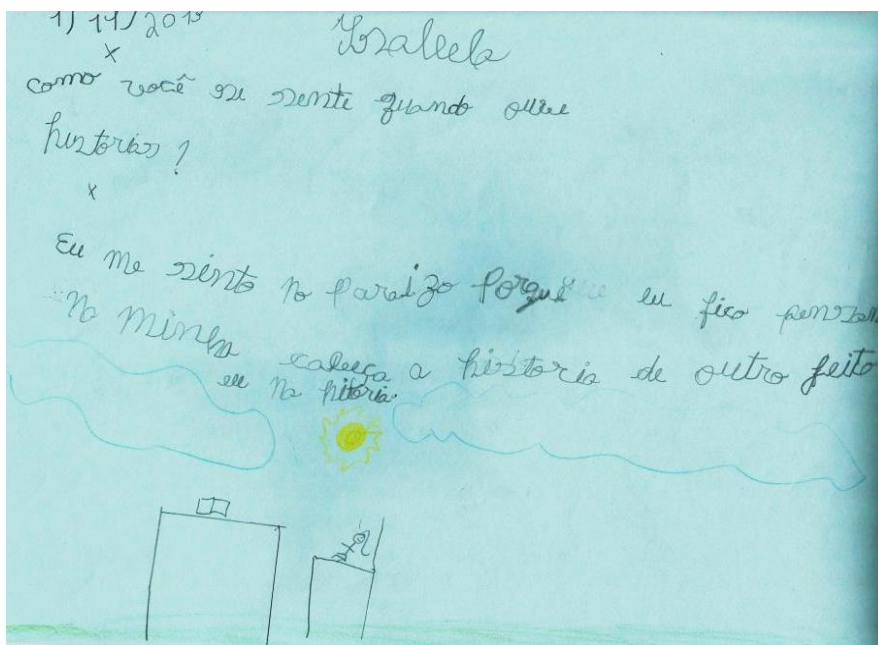 Izabela
x
como você se sente quando ouve
historias?
x
Eu me sinto no paraizo porque eu fico
na minha cabeça a historia de outro jeito
eu na hitoria.